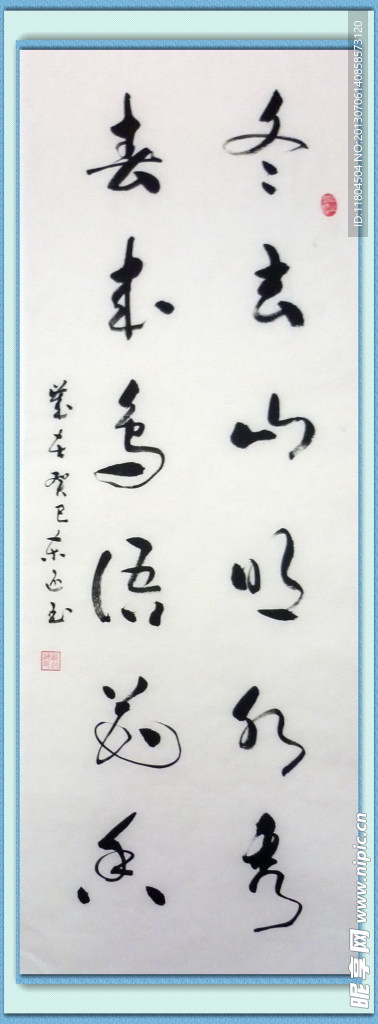 冬去山明水秀
春来鸟语花香
癸巳
ID:11804504 NO:20130706140858573120
昵享网 www.nipic.cn